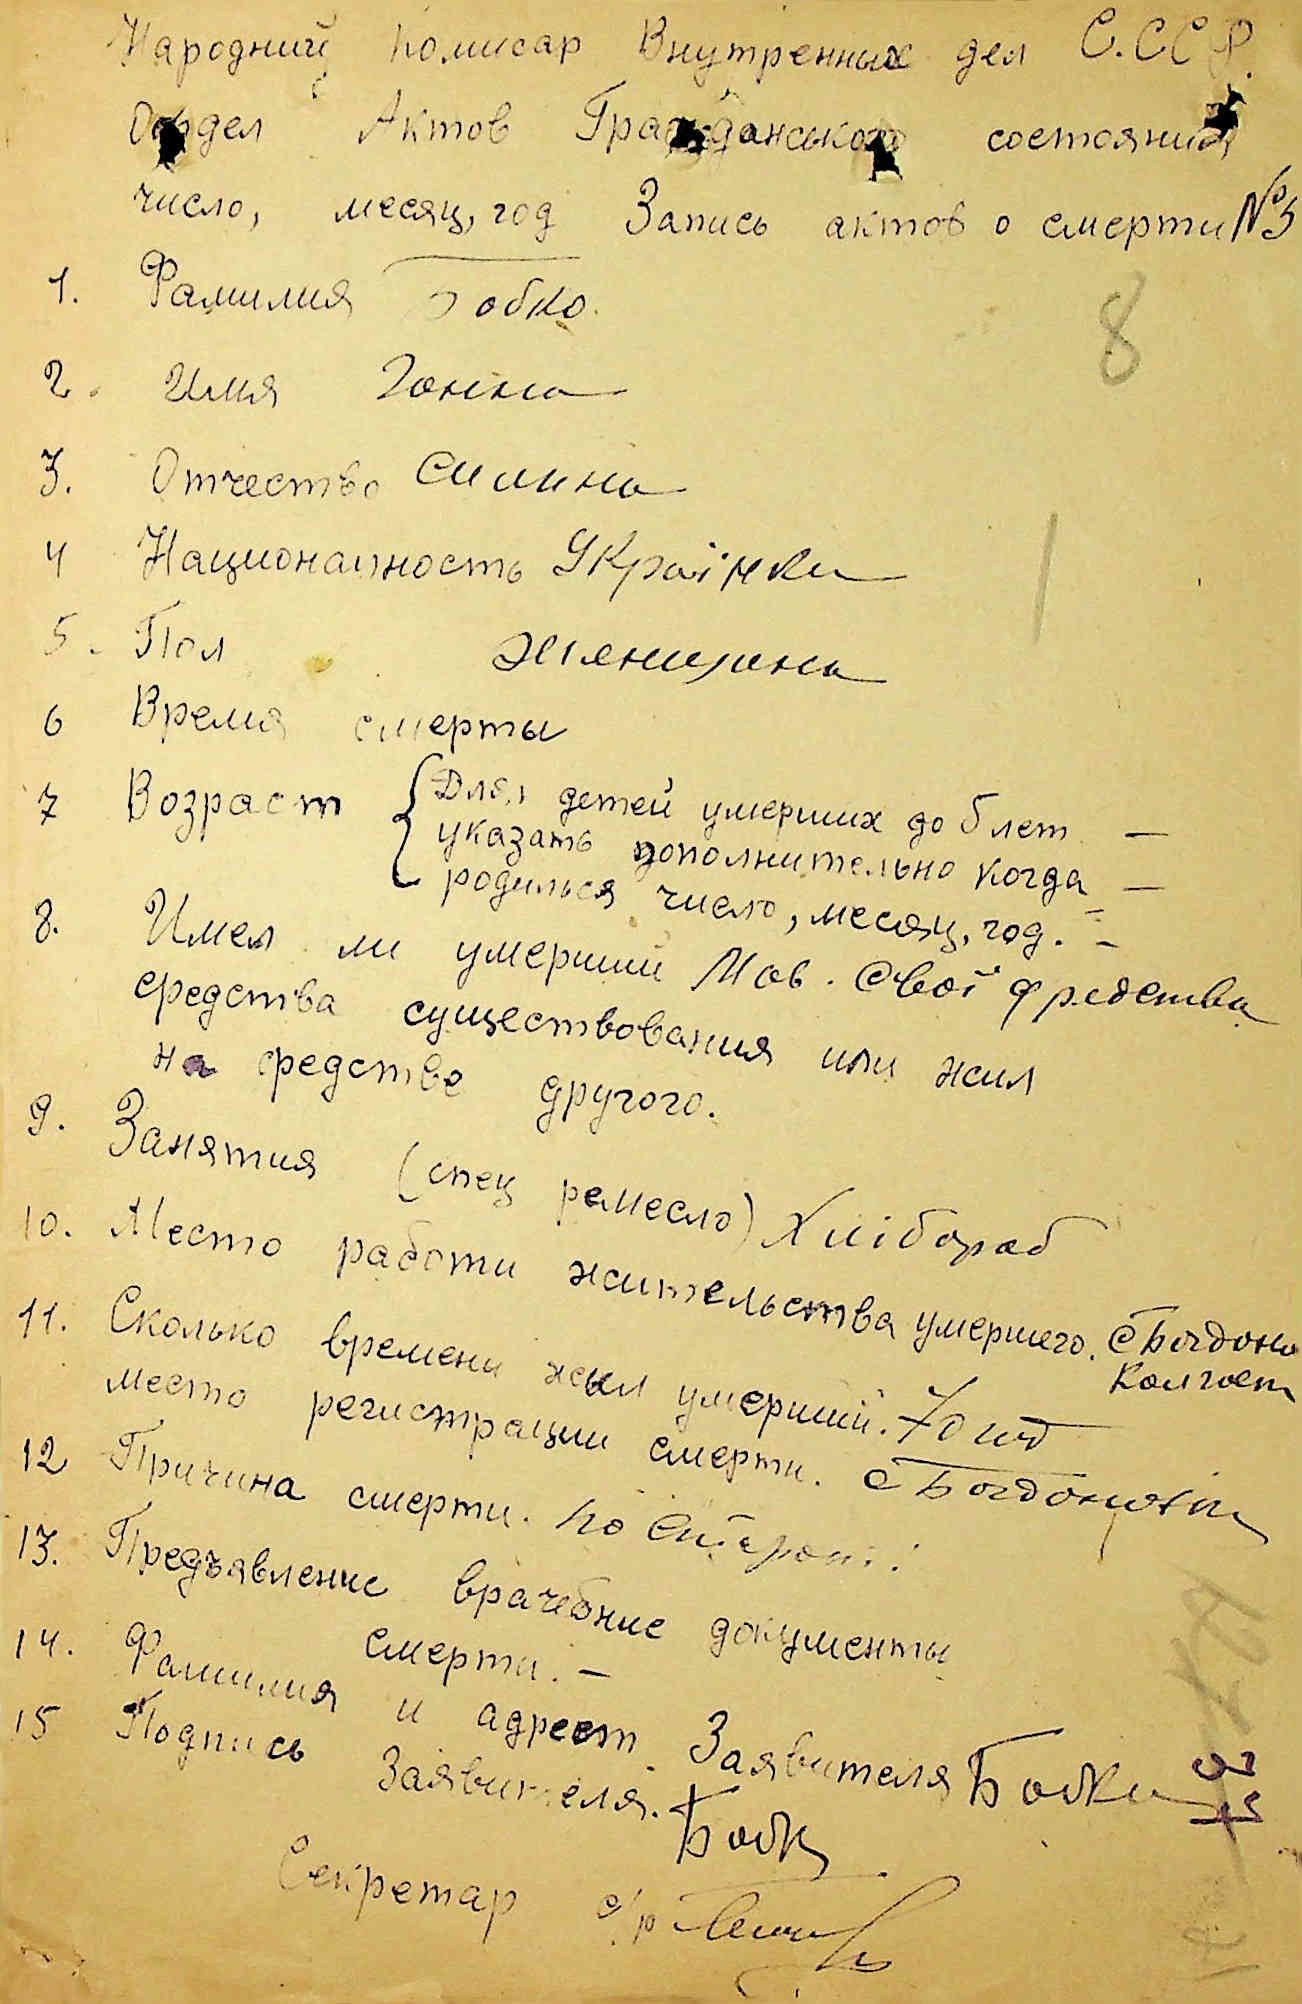 Народний Комисар Внутренных дел С.ССР.
Отдел Актов Гражданського состояния
число, месяц, год Запись актов о смерти №5
1. Фамилия Бобко.
8
2. Имя Ганна
3. Отчество Силина
4 Национальность Українка
5. Пол женщина
6 Время смерты
7 Возраст { Для детей умерших до 5 лет —
указать дополнительно когда —
родилься число, месяц, год. —
8. Имел ли умерший Мов. Свої средства
средства существования или жил
на средстве другого.
9. Занятия (спец ремесло) Хлібороб
10. Место работи жительства умершего. с Богдано
Колгосп
11. Сколько времени жил умерший. 70 літ
место регистрации смерти. с Богданівка
12 Причина смерти. по старості
13. Предъявление врачебние документы
смерти. —
14. Фамилия и адрест Заявителя Бобка
15 Подпись Заявителя. Бобк
Секретар с/р